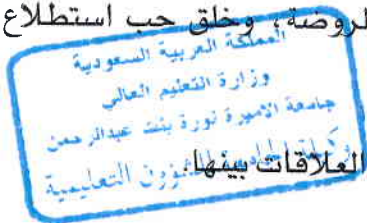 لروضة، وخلق حب استطلاع
المملكة العربية السعودية
وزارة التعليم العالي
جامعة الأميرة نورة بنت عبدالرحمن
للشؤون التعليمية
العلاقات بينها.